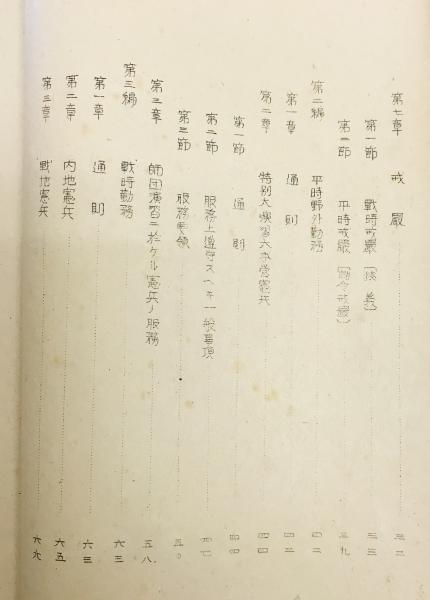 第七章 戒嚴 三二
第一節 戰時戒嚴 三三
第二節 平時戒嚴 三九
第二編 平時野外勤務 四二
第一章 通則 四二
第二章 特別大演習大本營憲兵 四四
第一節 通則 四四
第二節 服務上遵守スヘキ一般事項 四七
第三節 服務要領 五〇
第三章 師団演習ニ於ケル憲兵ノ服務 五八
第三編 戰時勤務 六三
第一章 通則 六三
第二章 内地憲兵 六五
第三章 戰地憲兵 六九